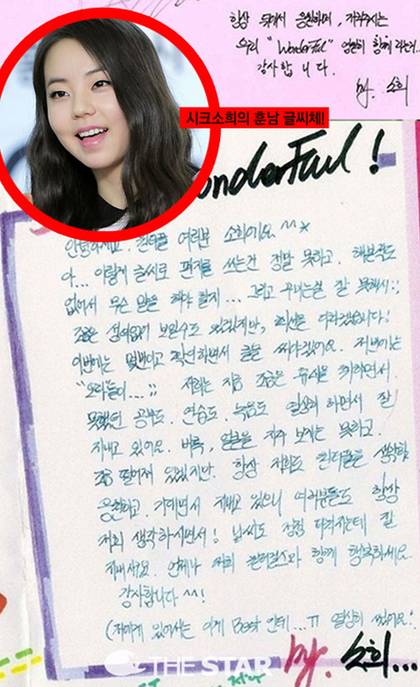 항상 뒤에서 응원하며, 격려해주는
우리 "Wonderful" 영원히 함께
감사합니다.
by. 소희
시크소희의 훈남 글씨체!
Wonderful!
안녕하세요. 원더풀 여러분 소희에요 ^^*
아... 이렇게 글씨로 편지를 쓰는건 정말 못하고. 해본적도
없어서 무슨 말을 해야 할지... 그리고 꾸미는걸 잘 못해서;;
조금은 성의없게 보일수도 있겠지만, 최선을 다하겠습니다!
이번에는 몇번이고 하면서 글을 써나갔어요. 저번에는
저희는 지금 조금은 휴식을 취하면서.
못했던 공부도. 연습도. 녹음도 열심히 하면서 잘
지내고 있어요. 비록, 얼굴을 자주 보지는 못하고.
조금 떨어져 있었지만. 항상 저희도 원더풀을 생각하
응원하고. 기대하면서 지내고 있으니 여러분들도 항상
저희 생각하시면서! 날씨도 점점 잘
지내세요. 언제나 저희 원더걸스와 함께 행복하세요
감사합니다 ^^!
(저에게 있어서는 이게 Best 인데...ㅠ 열심히 썼어요!
by. 소희...
THE STAR